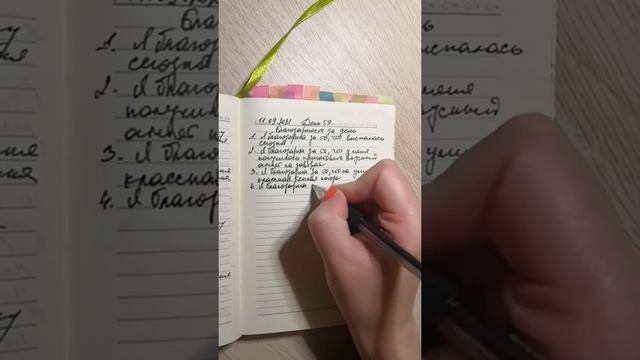 11.09.2021 День 57
Благодарности за день
1. Я благодарна за то, что выспалась
сегодня
2. Я благодарна за то, что у меня
получилось приготовить вкусный
омлет на завтрак
3. Я благодарна за то, что на улице
классная теплая погода
4. Я благодарна